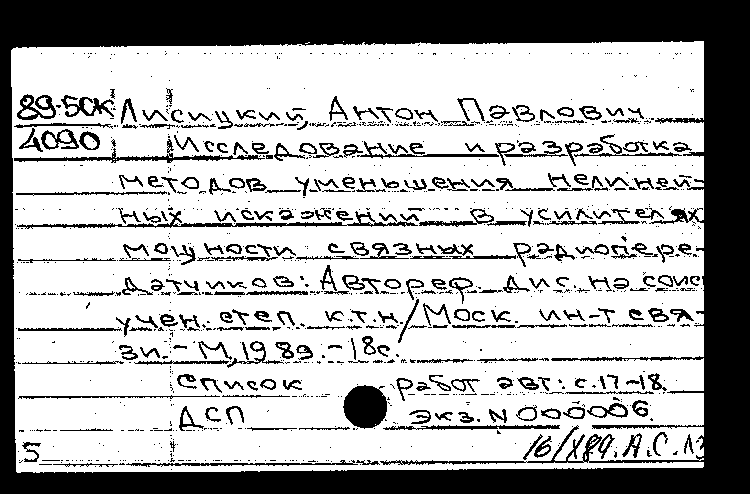 89-50К Лисицкий, Антон Павлович
4090 Исследование и разработка
методов уменьшения нелиней-
ных искажений в усилителях
мощности связных радиопере-
датчиков: Автореф. дис. на соиск
учен. степ. к.т.н./Моск. ин-т свя-
зи. - М, 1989. - 18с.
Список работ авт: с.17-18.
ДСП экз. N 000006.
5 16/X89. А.С.